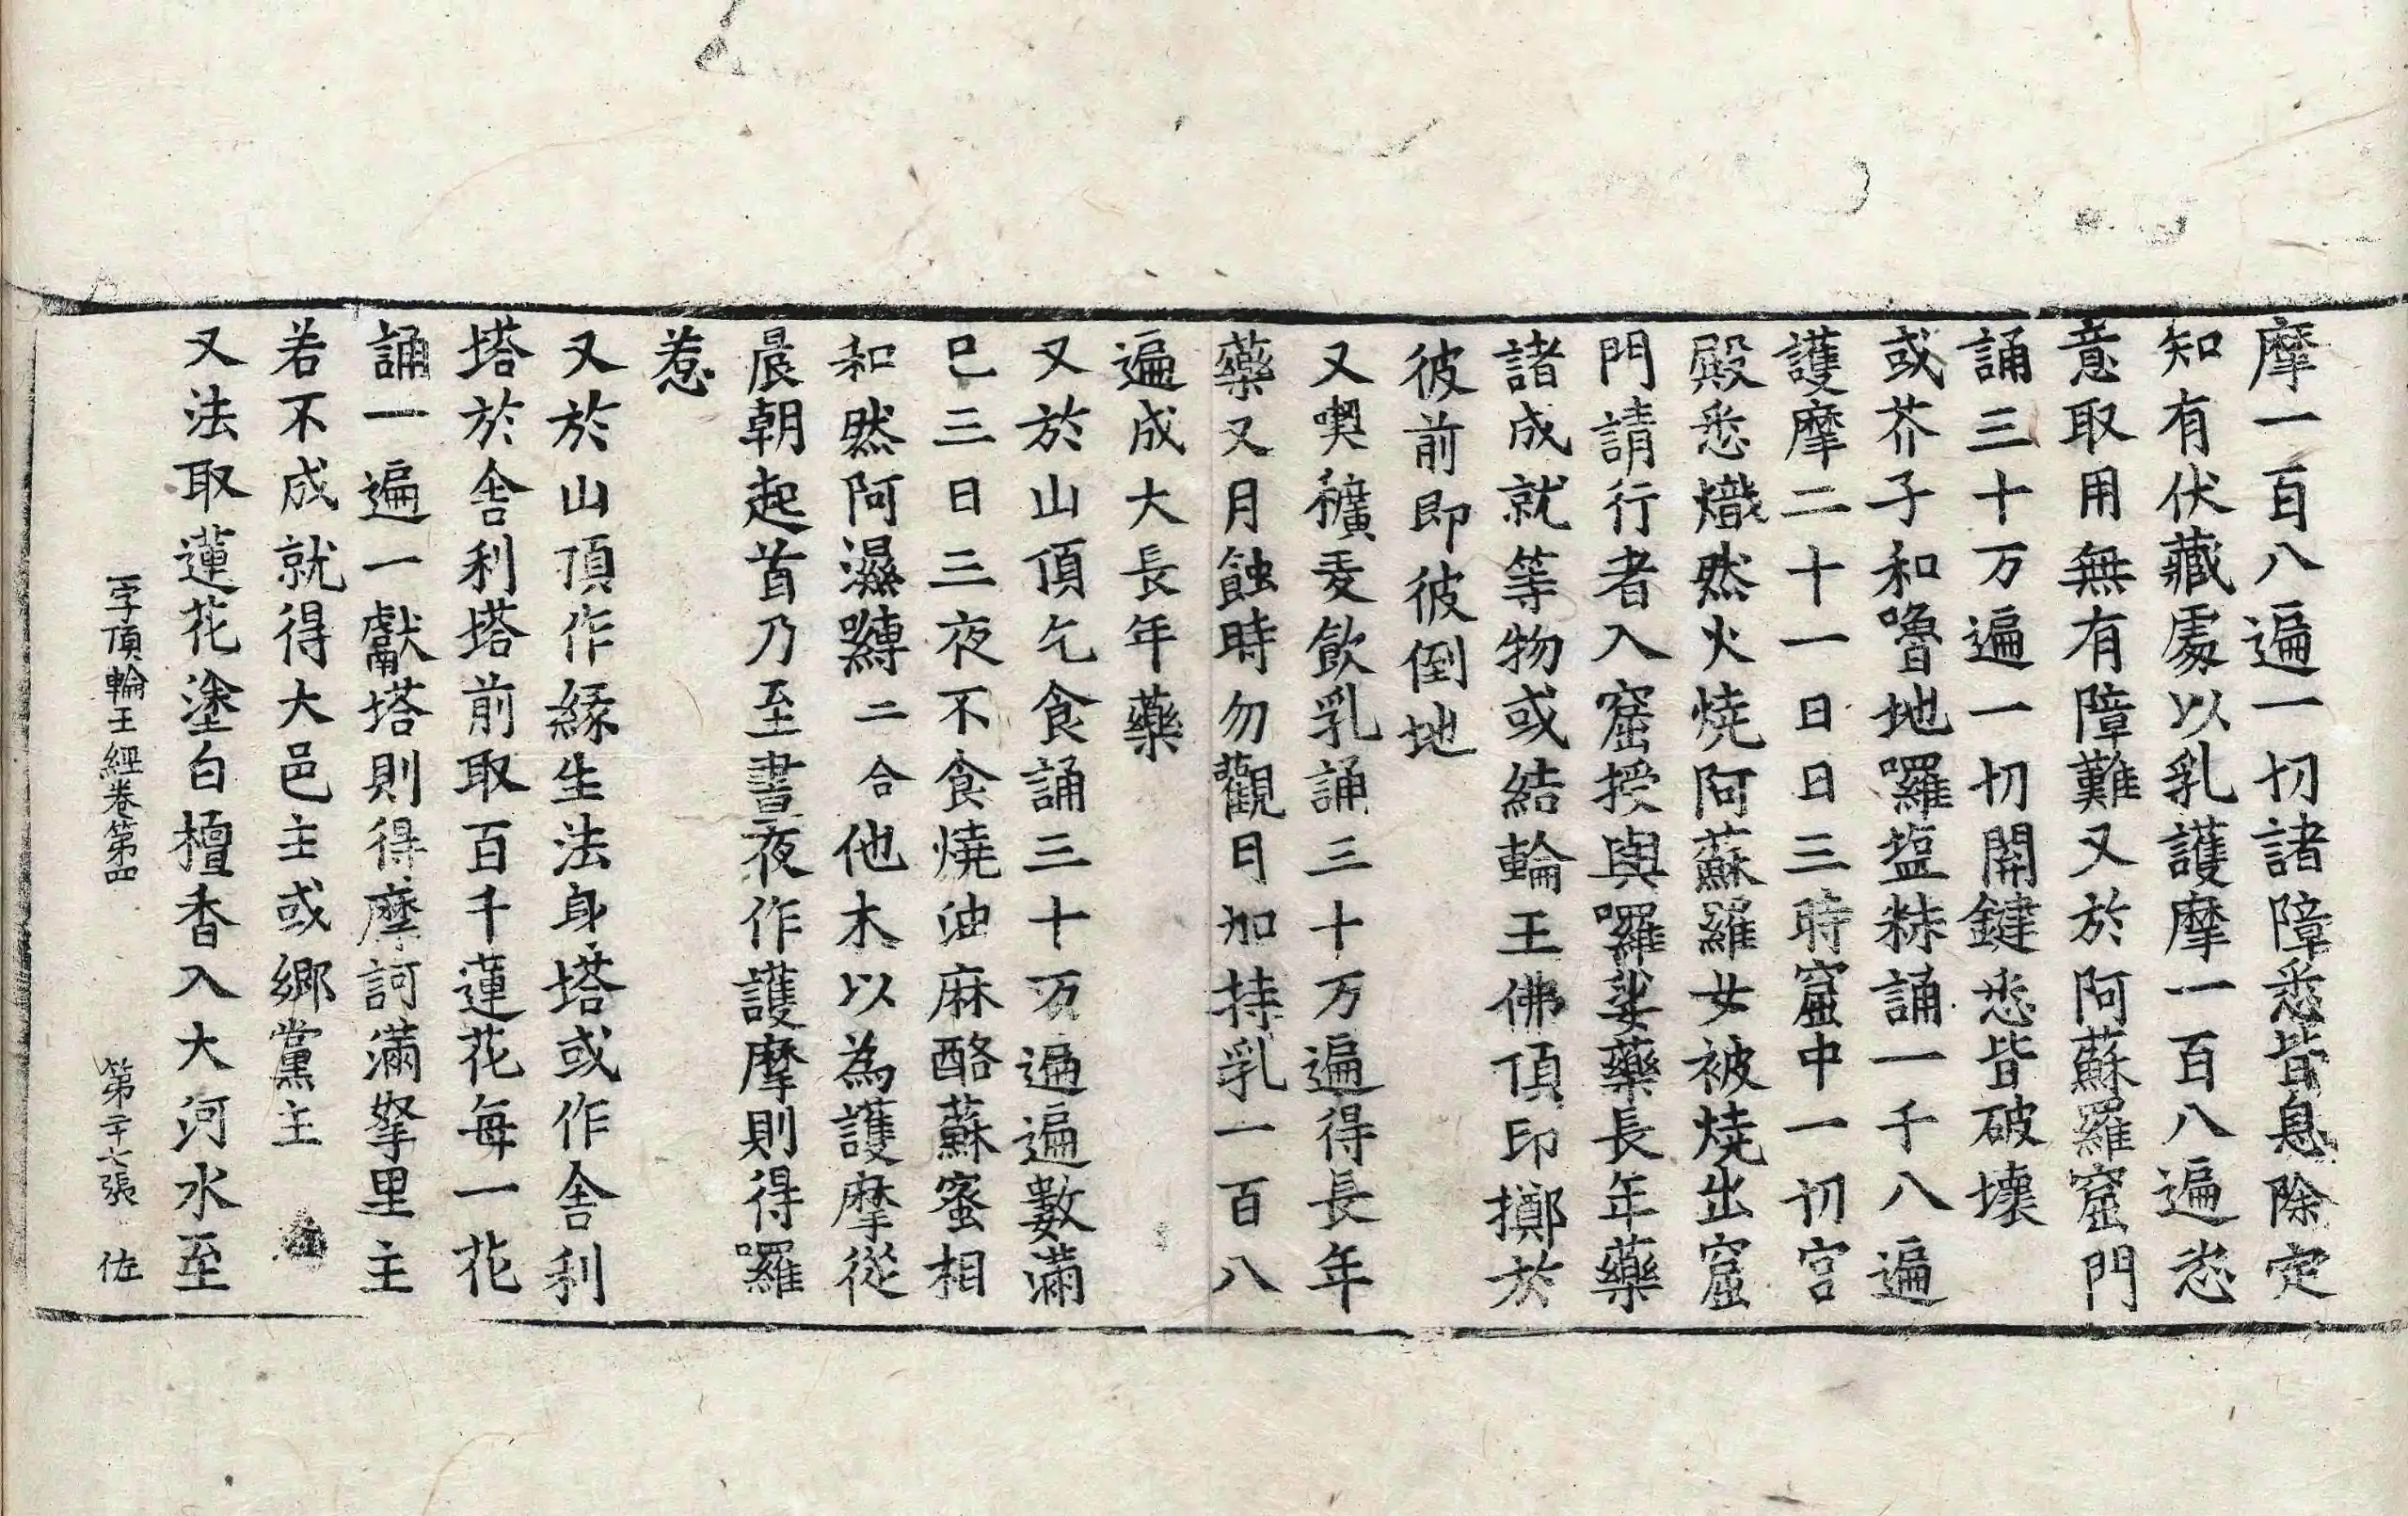 摩一百八遍一切諸障悉皆息除定
知有伏藏處以乳護摩一百八遍恣
意取用無有障難又於阿蘇羅窟門
誦三十万遍一切開鍵悉皆破壞
或芥子和嚕地囉塩粖誦一千八遍
護摩二十一日日三時窟中一切宮
殿悉熾然火燒阿蘇羅女被燒出窟
門請行者入窟授與囉娑藥長年藥
諸成就等物或結輪王佛頂印擲於
彼前即彼倒地
又喫穬麦飲乳誦三十万遍得長年
藥又月蝕時勿觀日加持乳一百八
遍成大長年藥
又於山頂乞食誦三十万遍遍數滿
已三日三夜不食燒油麻酪蘇蜜相
和然阿濕嚩二合他木以為護摩從
晨朝起首乃至晝夜作護摩則得羅
惹
又於山頂作緣生法身塔或作舍利
塔於舍利塔前取百千蓮花每一花
誦一遍一獻塔則得摩訶滿拏里主
若不成就得大邑主或鄉黨主
又法取蓮花塗白檀香入大河水至
一字頂輪王經卷第四 第二十七張 佐